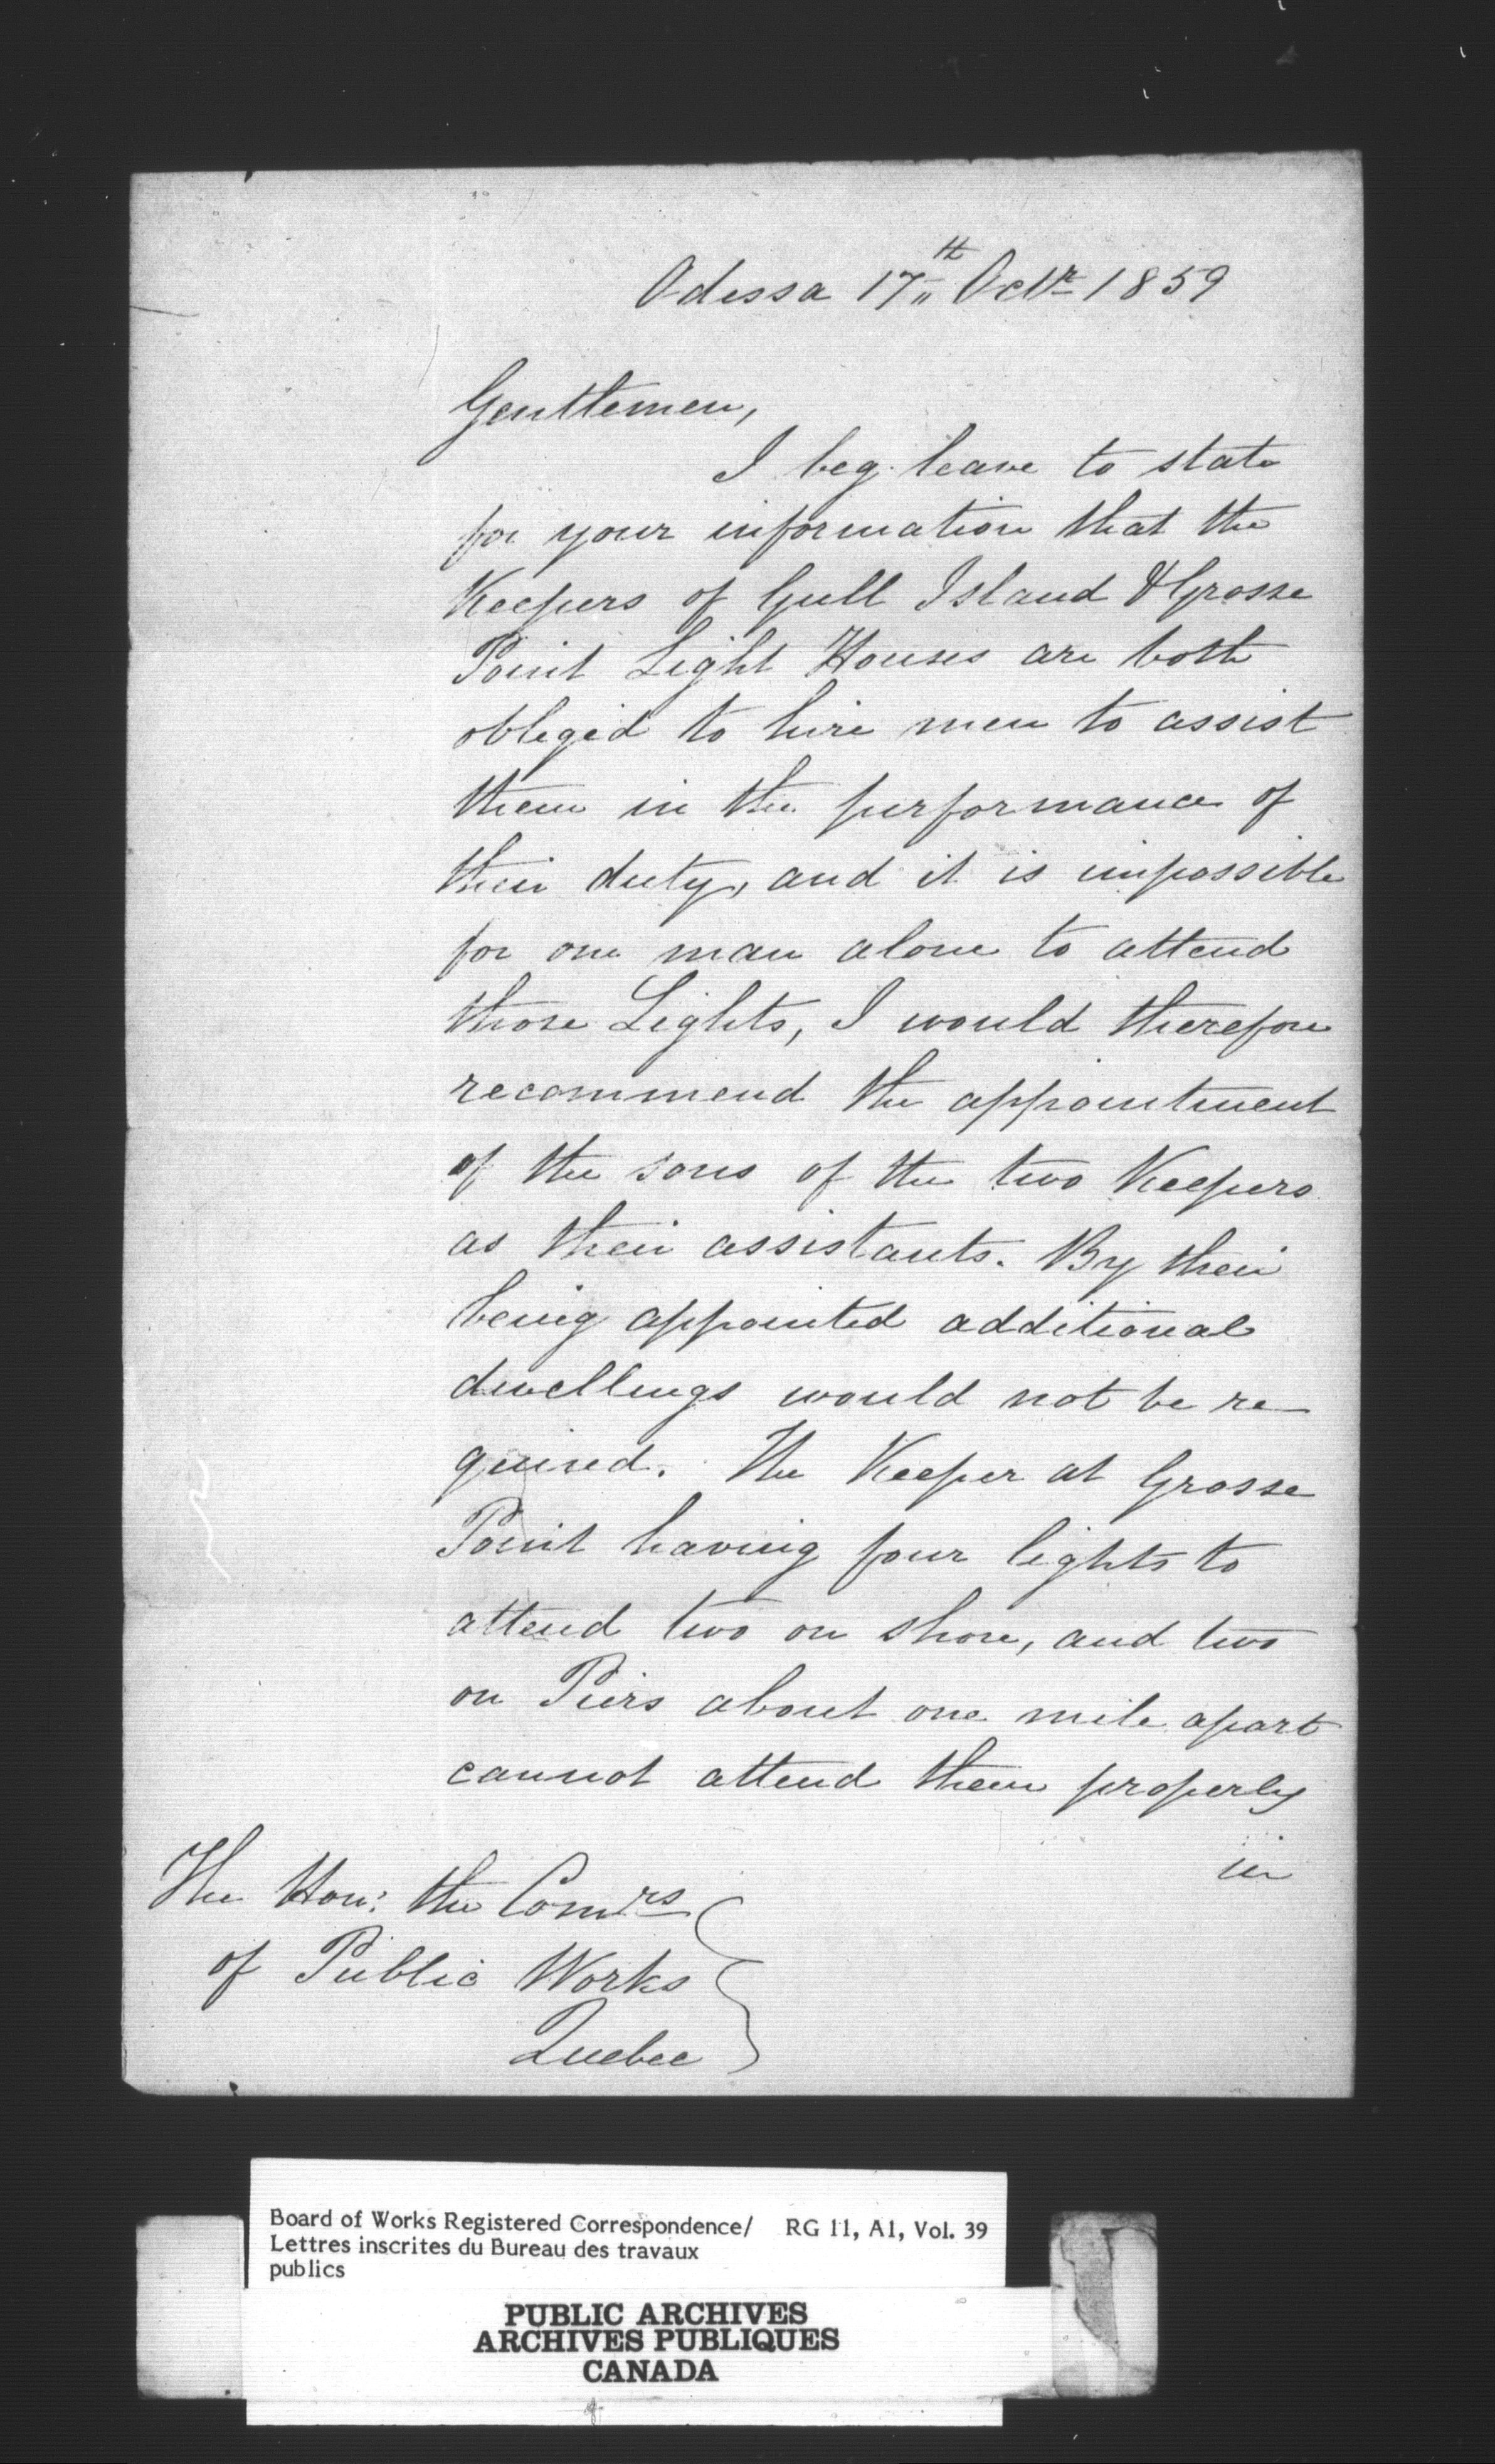 Odessa 17th Octr 1859
Gentlemen,
I beg leave to state
for your information that the
Keepers of Gull Island & Grosse
Point Light Houses are both
obliged to hire men to assist
them in the performance of
their duty, and it is impossible
for one man alone to attend
those Lights, I would therefore
recommend the appointment
of the sons of the two Keepers
as their assistants. By their
being appointed additional
dwellings would not be re-
quired. The Keeper at Grosse
Point having four lights to
attend two on shore, and two
on Piers about one mile apart
cannot attend them properly
in
The Hon: the Comrs
of Public Works
Quebec
Board of Works Registered Correspondence/ RG 11, A1, Vol. 39
Lettres inscrites du Bureau des travaux
publics
PUBLIC ARCHIVES
ARCHIVES PUBLIQUES
CANADA